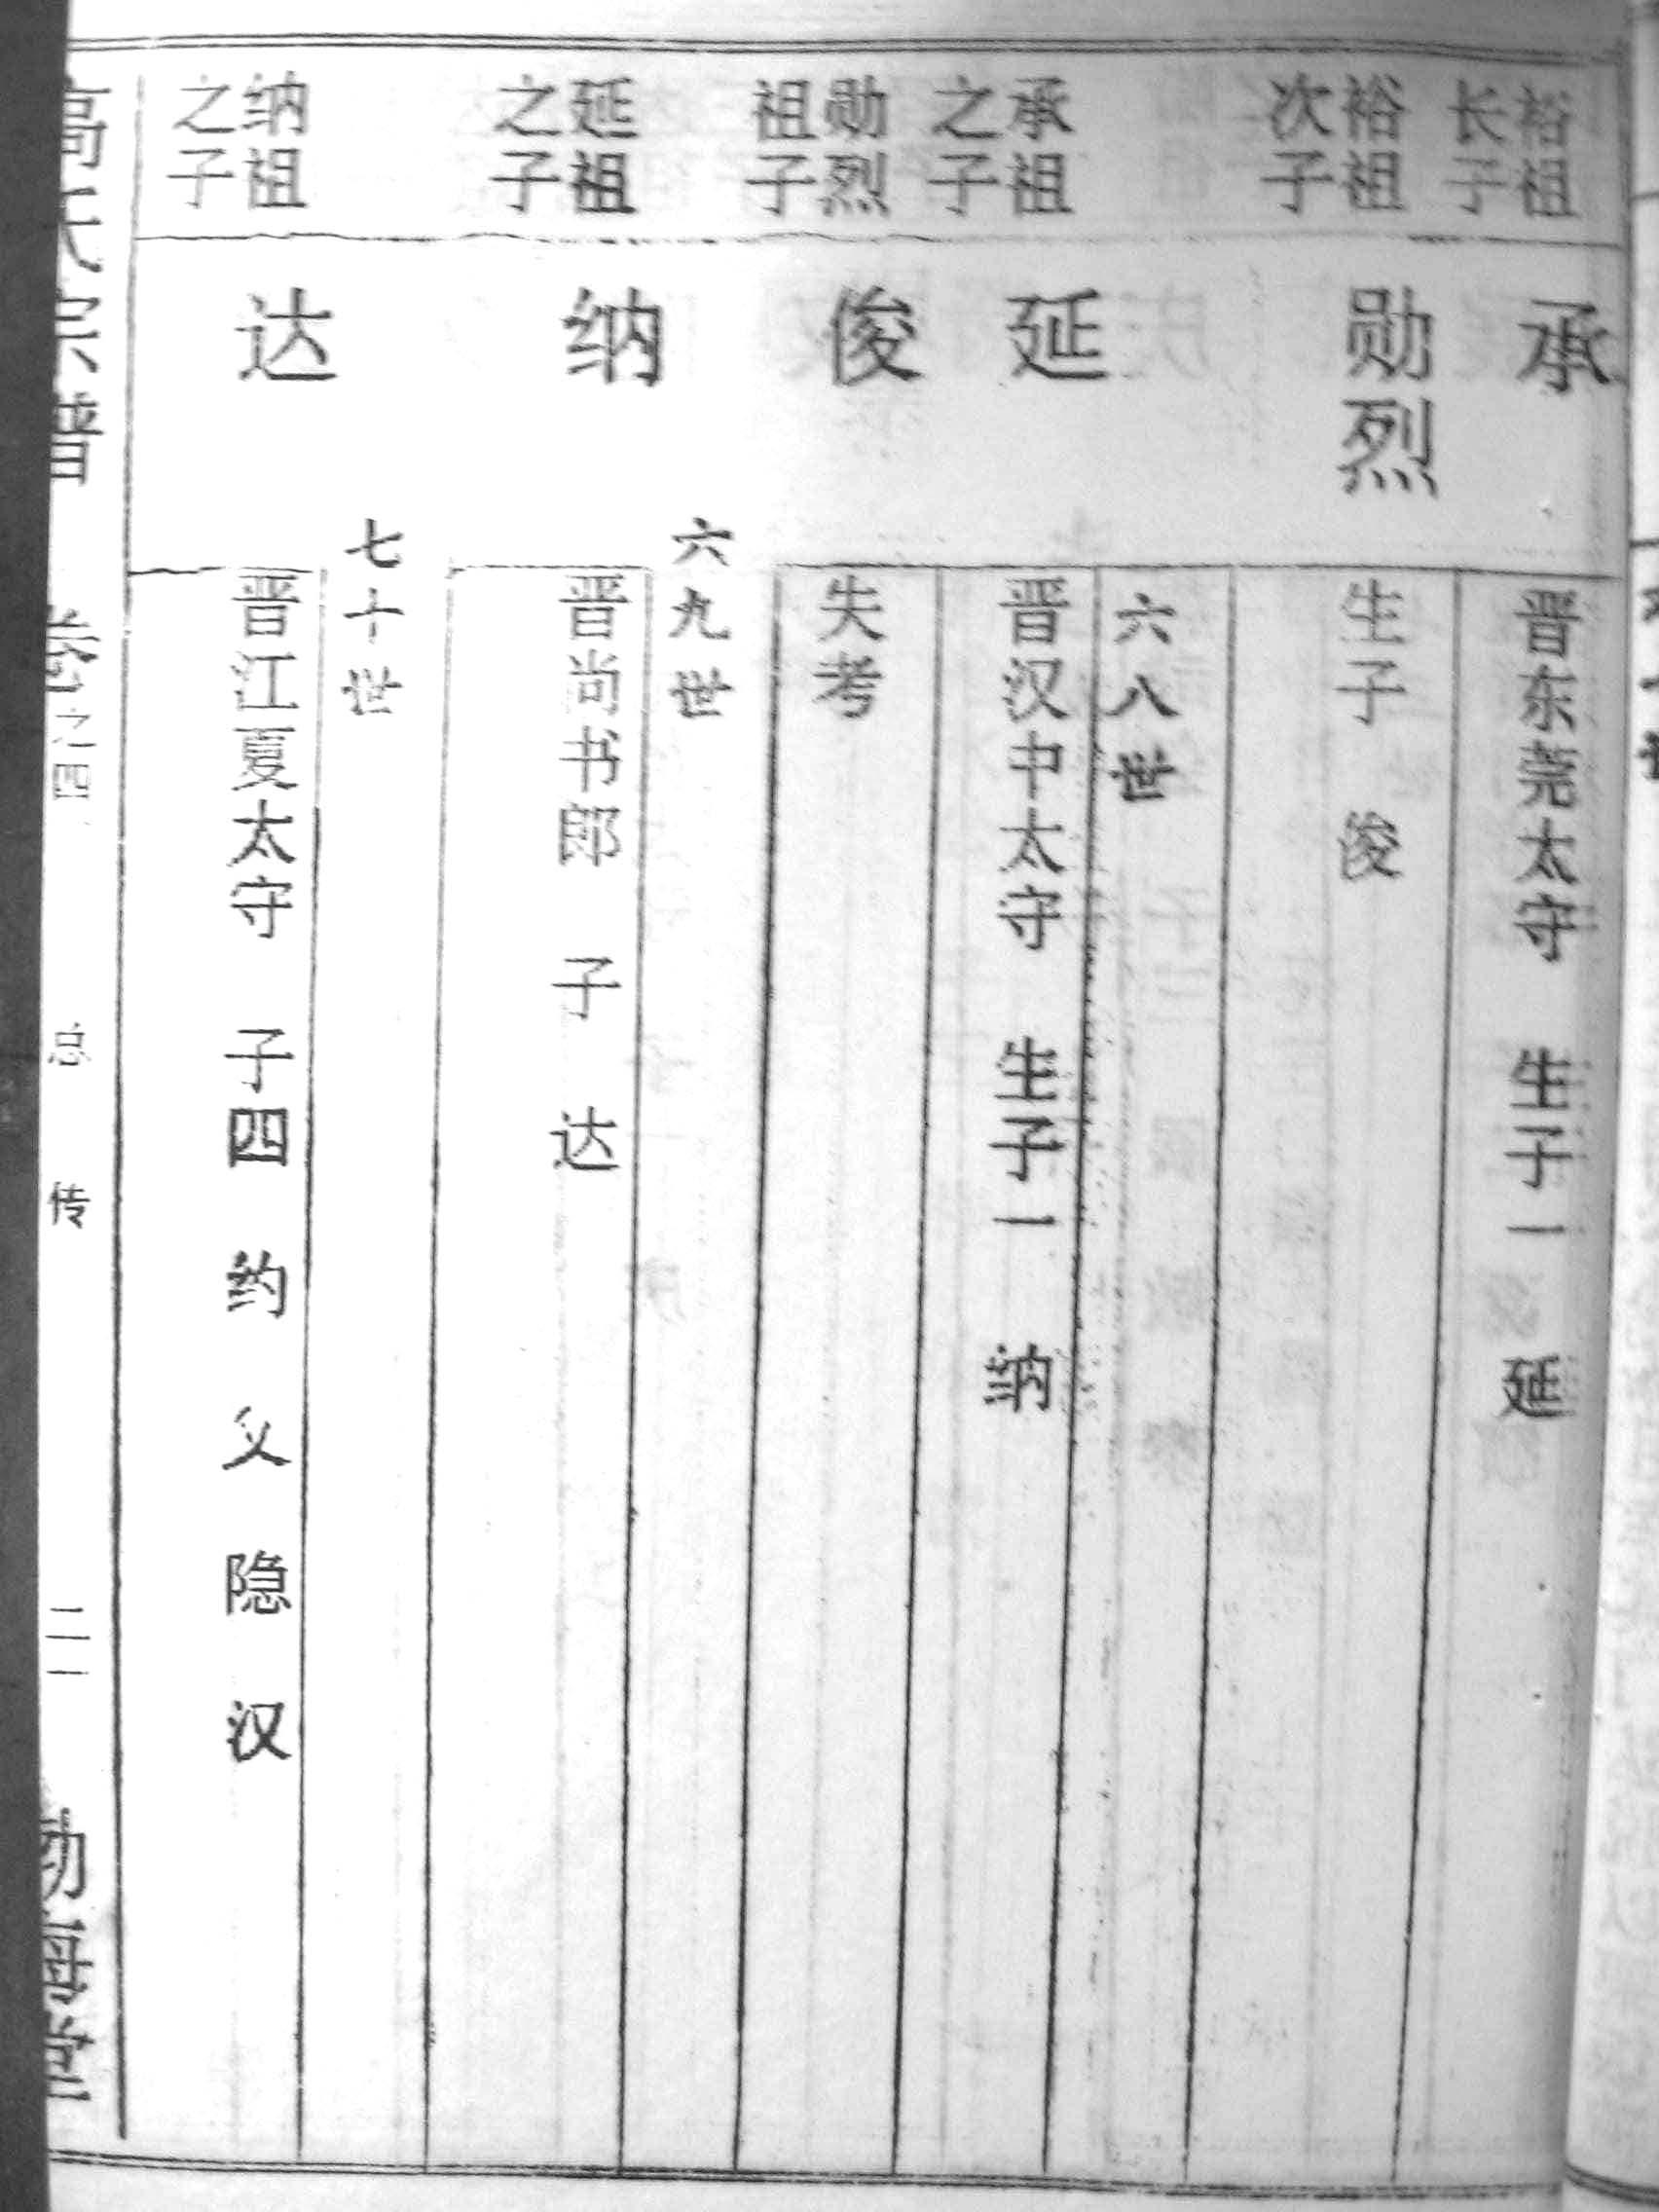 裕祖
长子
承
晋东莞太守 生子一 延
裕祖
次子
勋烈
生子 俊
六八世
承祖
之子
延
晋汉中太守 生子一 纳
勋烈
祖子
俊
失考
六九世
延祖
之子
纳
晋尚书郎 子 达
七十世
纳祖
之子
达
晋江夏太守 子四 约 父 隐 汉
高氏宗谱 卷之四 总传 二一 堂